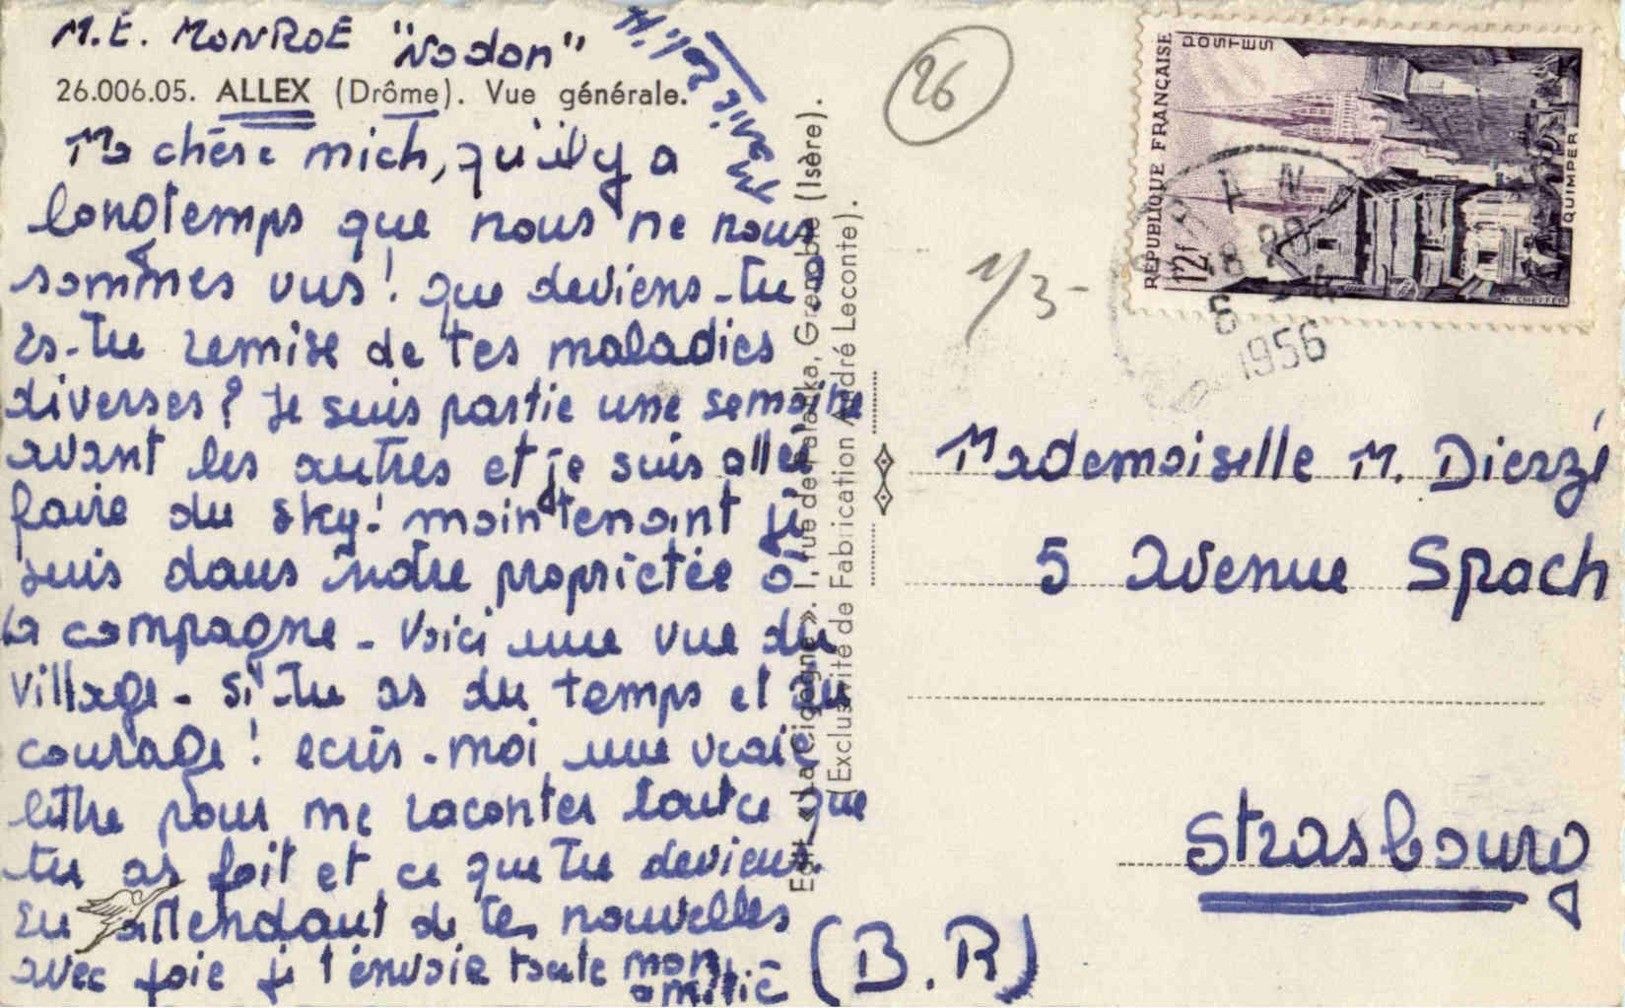 M.E. MONROE "Nodon"
26.006.05. ALLEX (Drôme). Vue générale.
Ma chère mich, qu'il y a
longtemps que nous ne nous
sommes vus! que deviens-tu?
Es-tu remise de tes maladies
diverses? Je suis partie une semaine
avant les autres et je suis allée
faire du sky! maintenant je
suis dans notre propriétée à
la campagne - Voici une vue du
village - si tu as du temps et du
courage! ecris-moi une vraie
lettre pour me raconter tout ce que
tu as fait et ce que tu deviens.
En attendant de tes nouvelles
avec joie je t'envoie toute mon
amitié
Edit. « La Cigogne ». 1, rue de Palanka, Grenoble (Isère).
(Exclusivité de Fabrication André Leconte).
26
1/3-
RÉPUBLIQUE FRANÇAISE
POSTES
12f
QUIMPER
18
6
1956
Mademoiselle M. Dierzé
5 Avenue Spach
Strasbourg
(B.R)